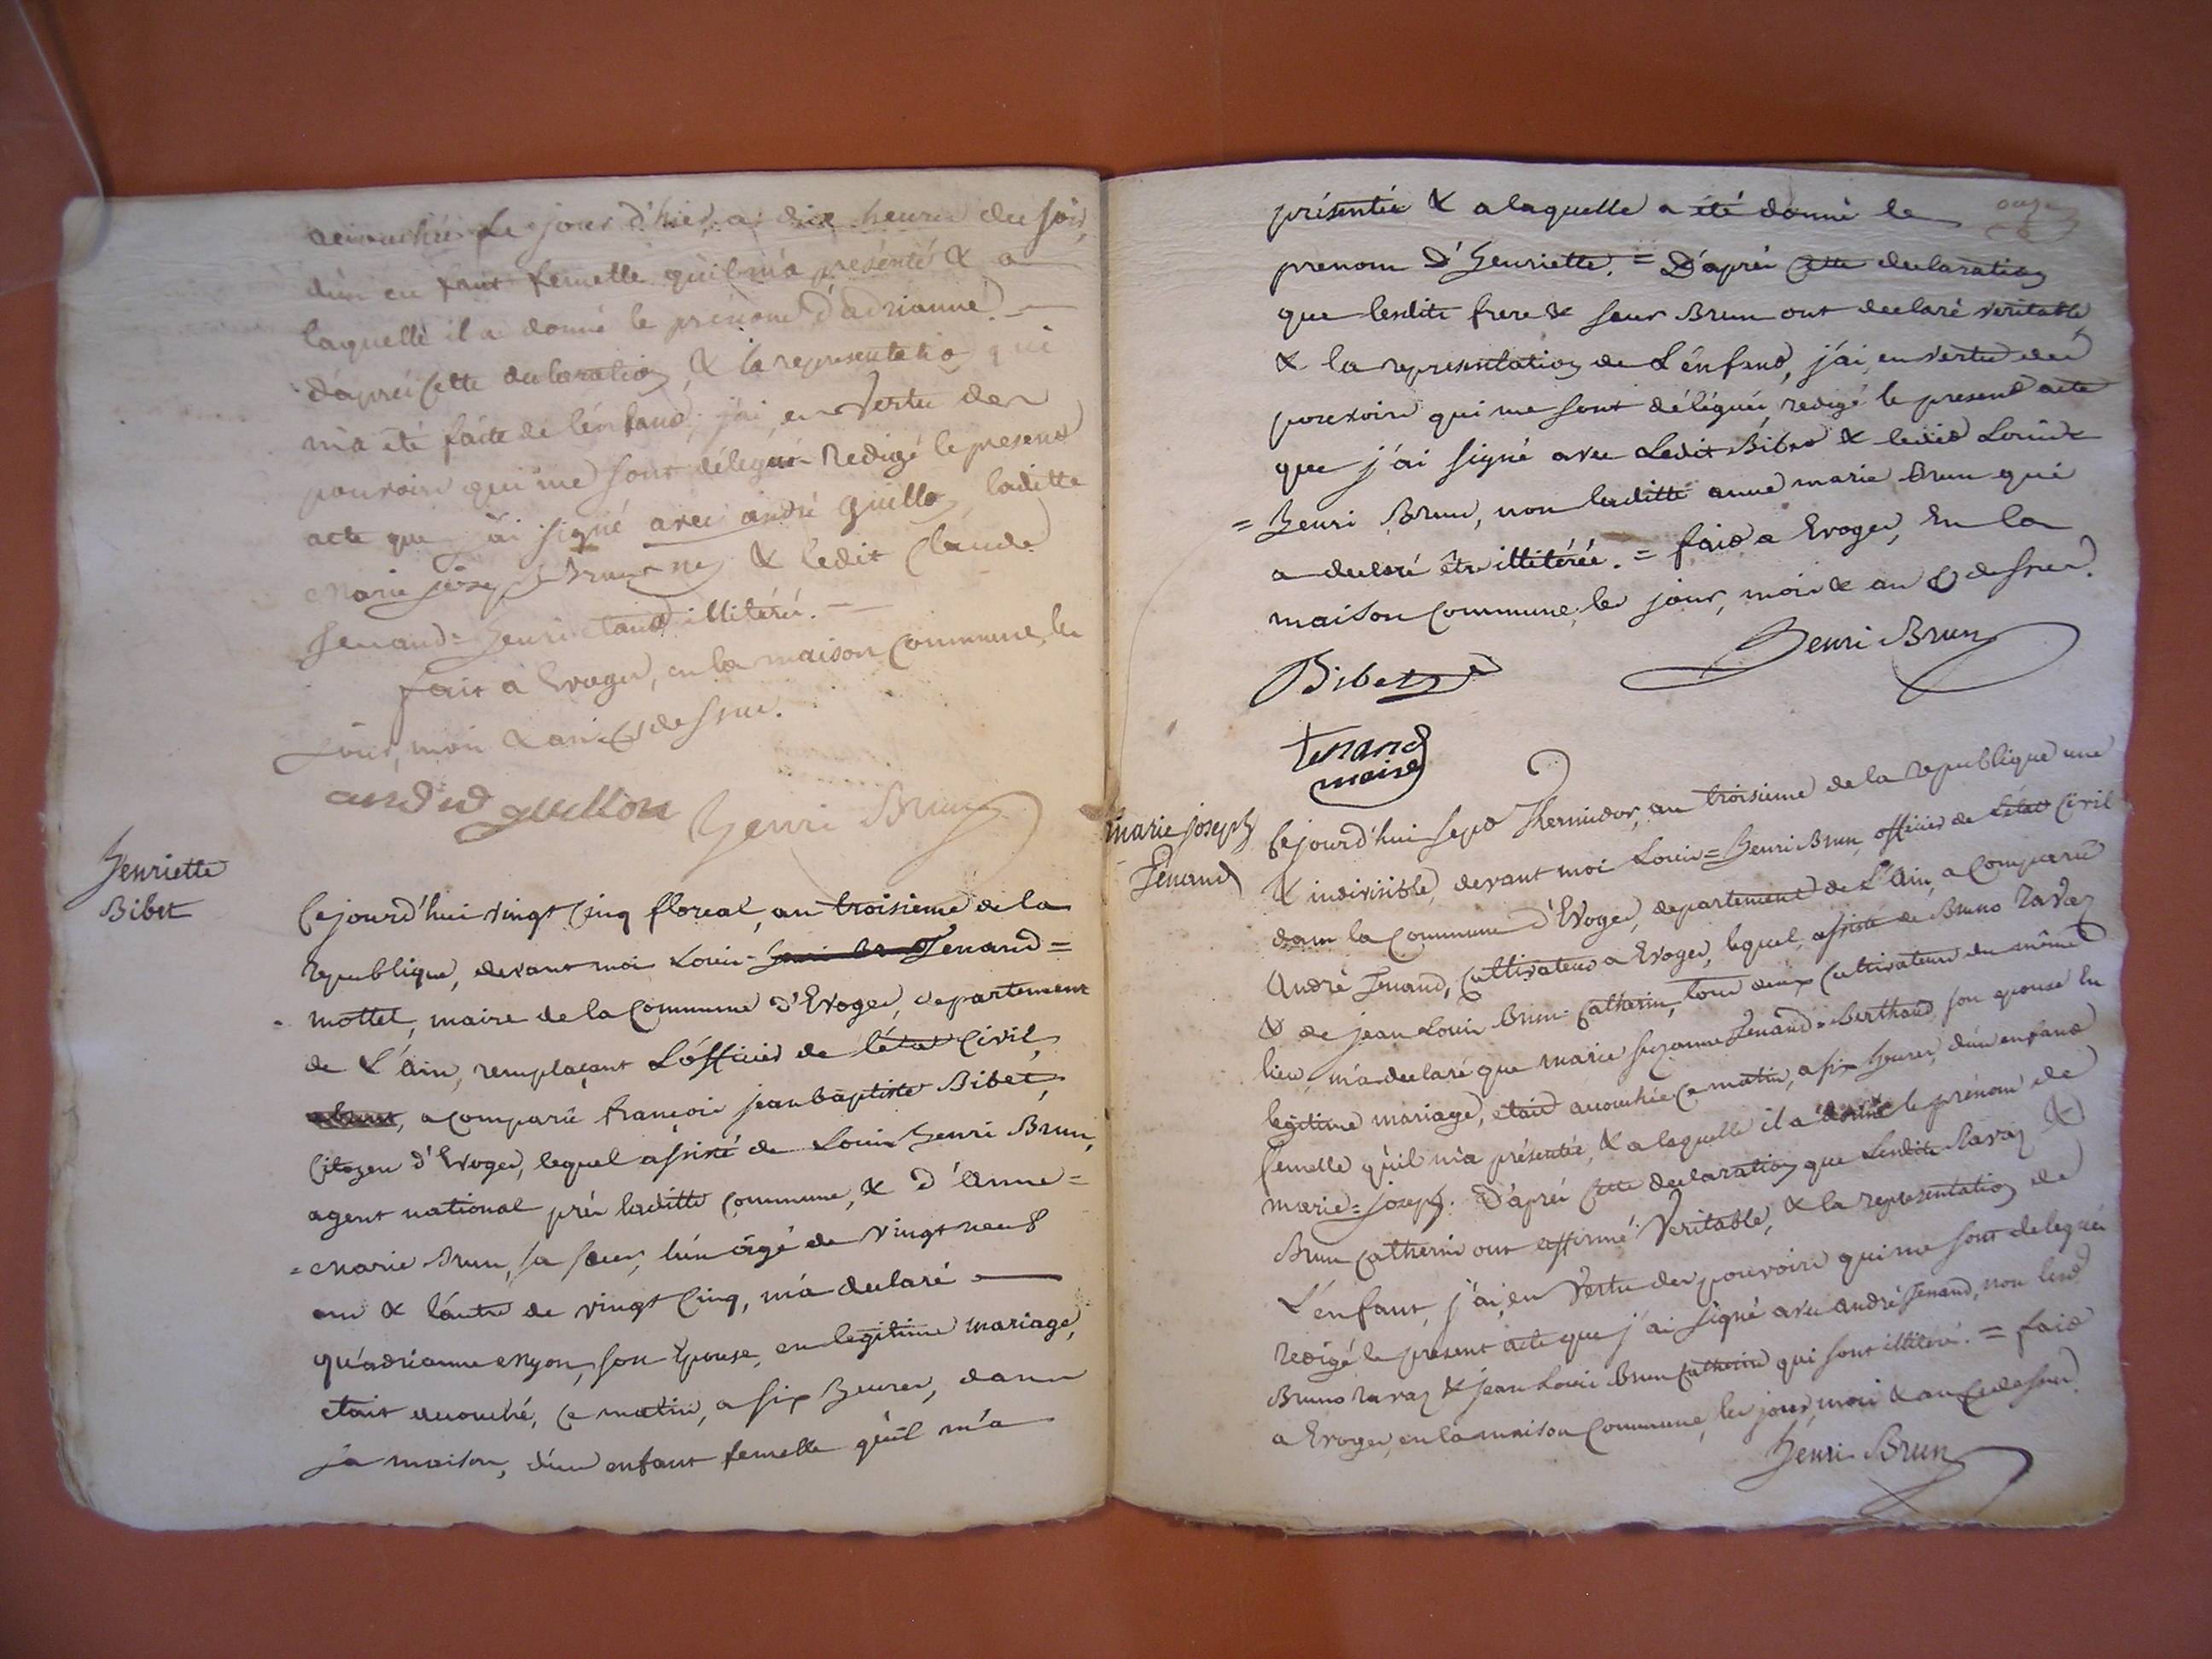 accouchée le jour d'hier, a dix heures du soir,
d'un enfant femelle qu'il m'a présenté & a
laquelle il a donné le prénom d'adrianne.
d'après cette declaration, & la representation qui
m'a été faite de l'enfand, j'ai, en vertu des
pouvoirs qui me sont délégués redigé le present
acte que j'ai signé avec andré guillon, laditte
Marie Joseph & ledit Claude
Tenand-Henri etant illitéré.
fait a Evoges, en la maison Commune, les
Jour, mois & an Cy dessus.
andré guillon Henri Brun
Henriette
Bibet
Cejourd'hui vingt Cinq floreal, an troisieme de la
republique, devant moi Louis- Tenand=
mottet, maire de la Commune d'Evoges, departement
de L'Ain, remplaçant L'officier de l'état Civil,
a comparu françois jean baptiste Bibet,
Citoyen d'Evoges, lequel assisté de Louis Henri Brun,
agent national près laditte Commune, & d'Anne=
=Marie Brun, sa sœur, l'un âgé de vingt neuf
ans & l'autre de vingt Cinq, m'a declaré
qu'adrianne Nyon, son Epouse, en legitime mariage,
etait accouché, Ce matin, a six heures, dans
sa maison, d'un enfant femelle qu'il m'a
onze
présentée & a laquelle a été donné le
prenom d'Henriette. = D'après Cette declaration
que lesdits frere & sœur Brun ont declaré veritable,
& la representation de L'enfand, j'ai, en vertu des
pouvoirs qui me sont délégués, redigé le present acte
que j'ai signé avec Ledit Bibet & ledit Louis
= Henri Brun, non laditte anne marie Brun qui
a declaré être illitérée. = fait a Evoges, En la
maison Commune, les jour, mois & an Cy dessus.
Henri Brun
Bibet
tenand
maire
marie joseph
Tenand
Cejourd'hui sept Thermidor, an troisieme de la republique une
& indivisible, devant moi Louis=Henri Brun, officier de L'état Civil
dans la Commune d'Evoges, departement de L'Ain, a Comparu
André Tenand, Cultivateur a Evoges, lequel, assisté de Bruno Ravaz
& de jean Louis Brun-Catherin, tous deux Cultivateurs du même
lieu, m'a declaré que marie suzanne Tenand-Berthand, son epouse En
legitime mariage, etait accouchée Ce matin, a six heures, d'un enfand
femelle qu'il m'a présentée, & a laquelle il a donné le prénom de
marie=joseph. D'après Cette declaration que Lesdits Ravaz &
Brun Catherin ont affirmé Veritable, & la representation de
L'enfant, j'ai, en Vertu des pouvoirs qui me sont delegués
redigé le present acte que j'ai signé avec André Tenand, non lesd
Bruno Ravaz & jean Louis Brun Catherin qui sont illiteré. = fait
a Evoges, en la maison Commune, les jour, mois & an Cy dessus.
Henri Brun